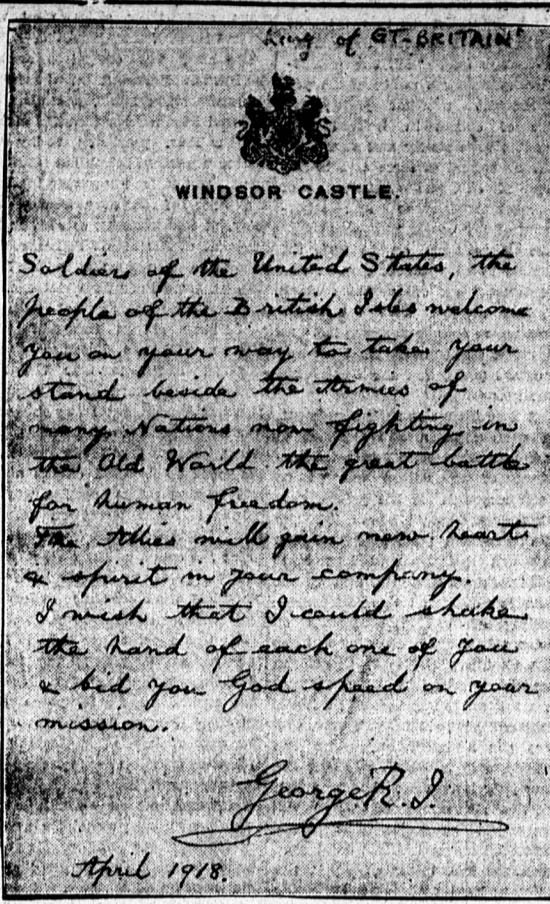 King of GT-BRITAIN
WINDSOR CASTLE.
Soldiers of the United States, the
people of the British Isles welcome
you on your way to take your
stand beside the Armies of
many Nations now fighting in
the Old World the great battle
for human freedom.
The Allies will gain new heart
& spirit in your company.
I wish that I could shake
the hand of each one of you
& bid you God speed on your
mission.
George R.I.
April 1918.